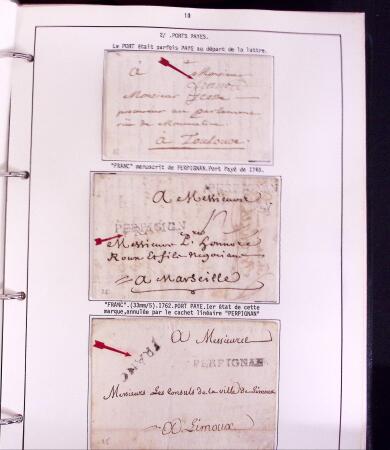 10
2/ .PORTS PAYES.
Le PORT était parfois PAYE au départ de la lettre.
à Monsieur
Monsieur
procureur au parlement
rue de
à Toulouse
"FRANC" manuscrit de PERPIGNAN.Port Payé de
a Messieurs
PERPIGNAN
Messieurs L. Honnoré
Roux et fils Negotians
a Marseille
"FRANC".(33mm/5).1762.PORT PAYE.1er état de cette
marque,annulée par le cachet linéaire "PERPIGNAN"
a Messieurs
FRANC
PERPIGNAN
Messieurs Les Consuls de la ville de Limoux
a Limoux